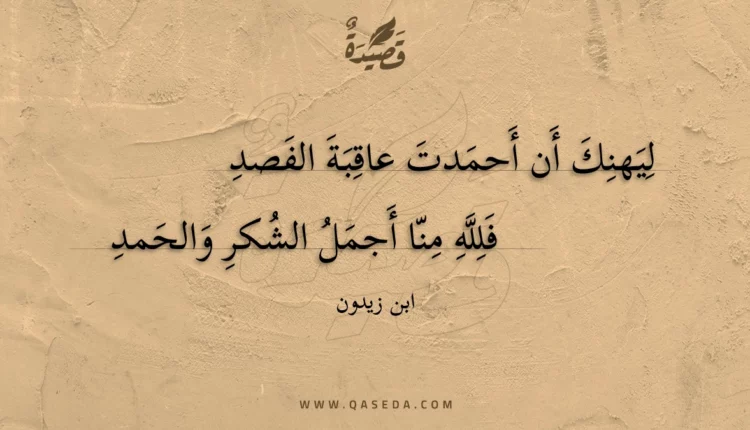 قَصِيْدَةٌ
لِيَهنِكَ أَن أَحمَدتَ عاقِبَةَ الفَصدِ
فَلِلَّهِ مِنّا أَجمَلُ الشُكرِ وَالحَمدِ
ابن زيدون
WWW.QASEDA.COM